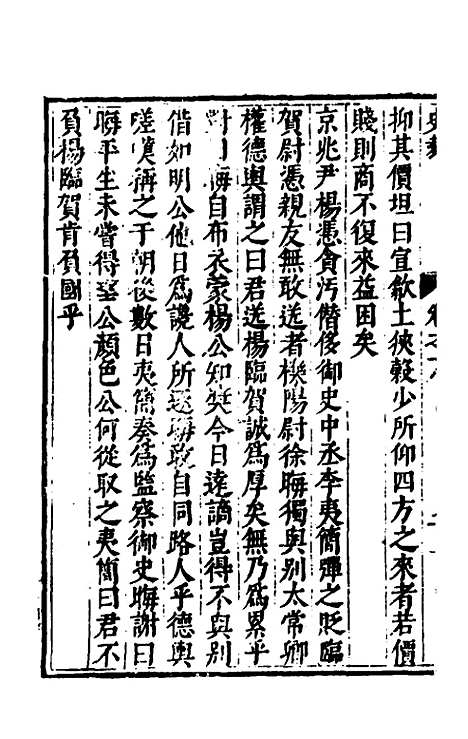 抑其價坦曰宣歙土狹穀少所仰四方之來者若價
賤則商不復來益困矣
京兆尹楊憑貪汚僭侈御史中丞李夷簡彈之貶臨
賀尉憑親友無敢送者櫟陽尉徐晦獨與别太常卿
權德輿謂之曰君送楊臨賀誠爲厚矣無乃爲累乎
對曰晦自布衣蒙楊公知奬今日遠謫豈得不與别
借如明公他日爲讒人所逐晦敢自同路人乎德輿
嗟嘆稱之于朝後數日夷簡奏爲監察御史晦謝曰
晦平生未嘗得望公顔色公何從取之夷簡曰君不
負楊臨賀肯負國乎